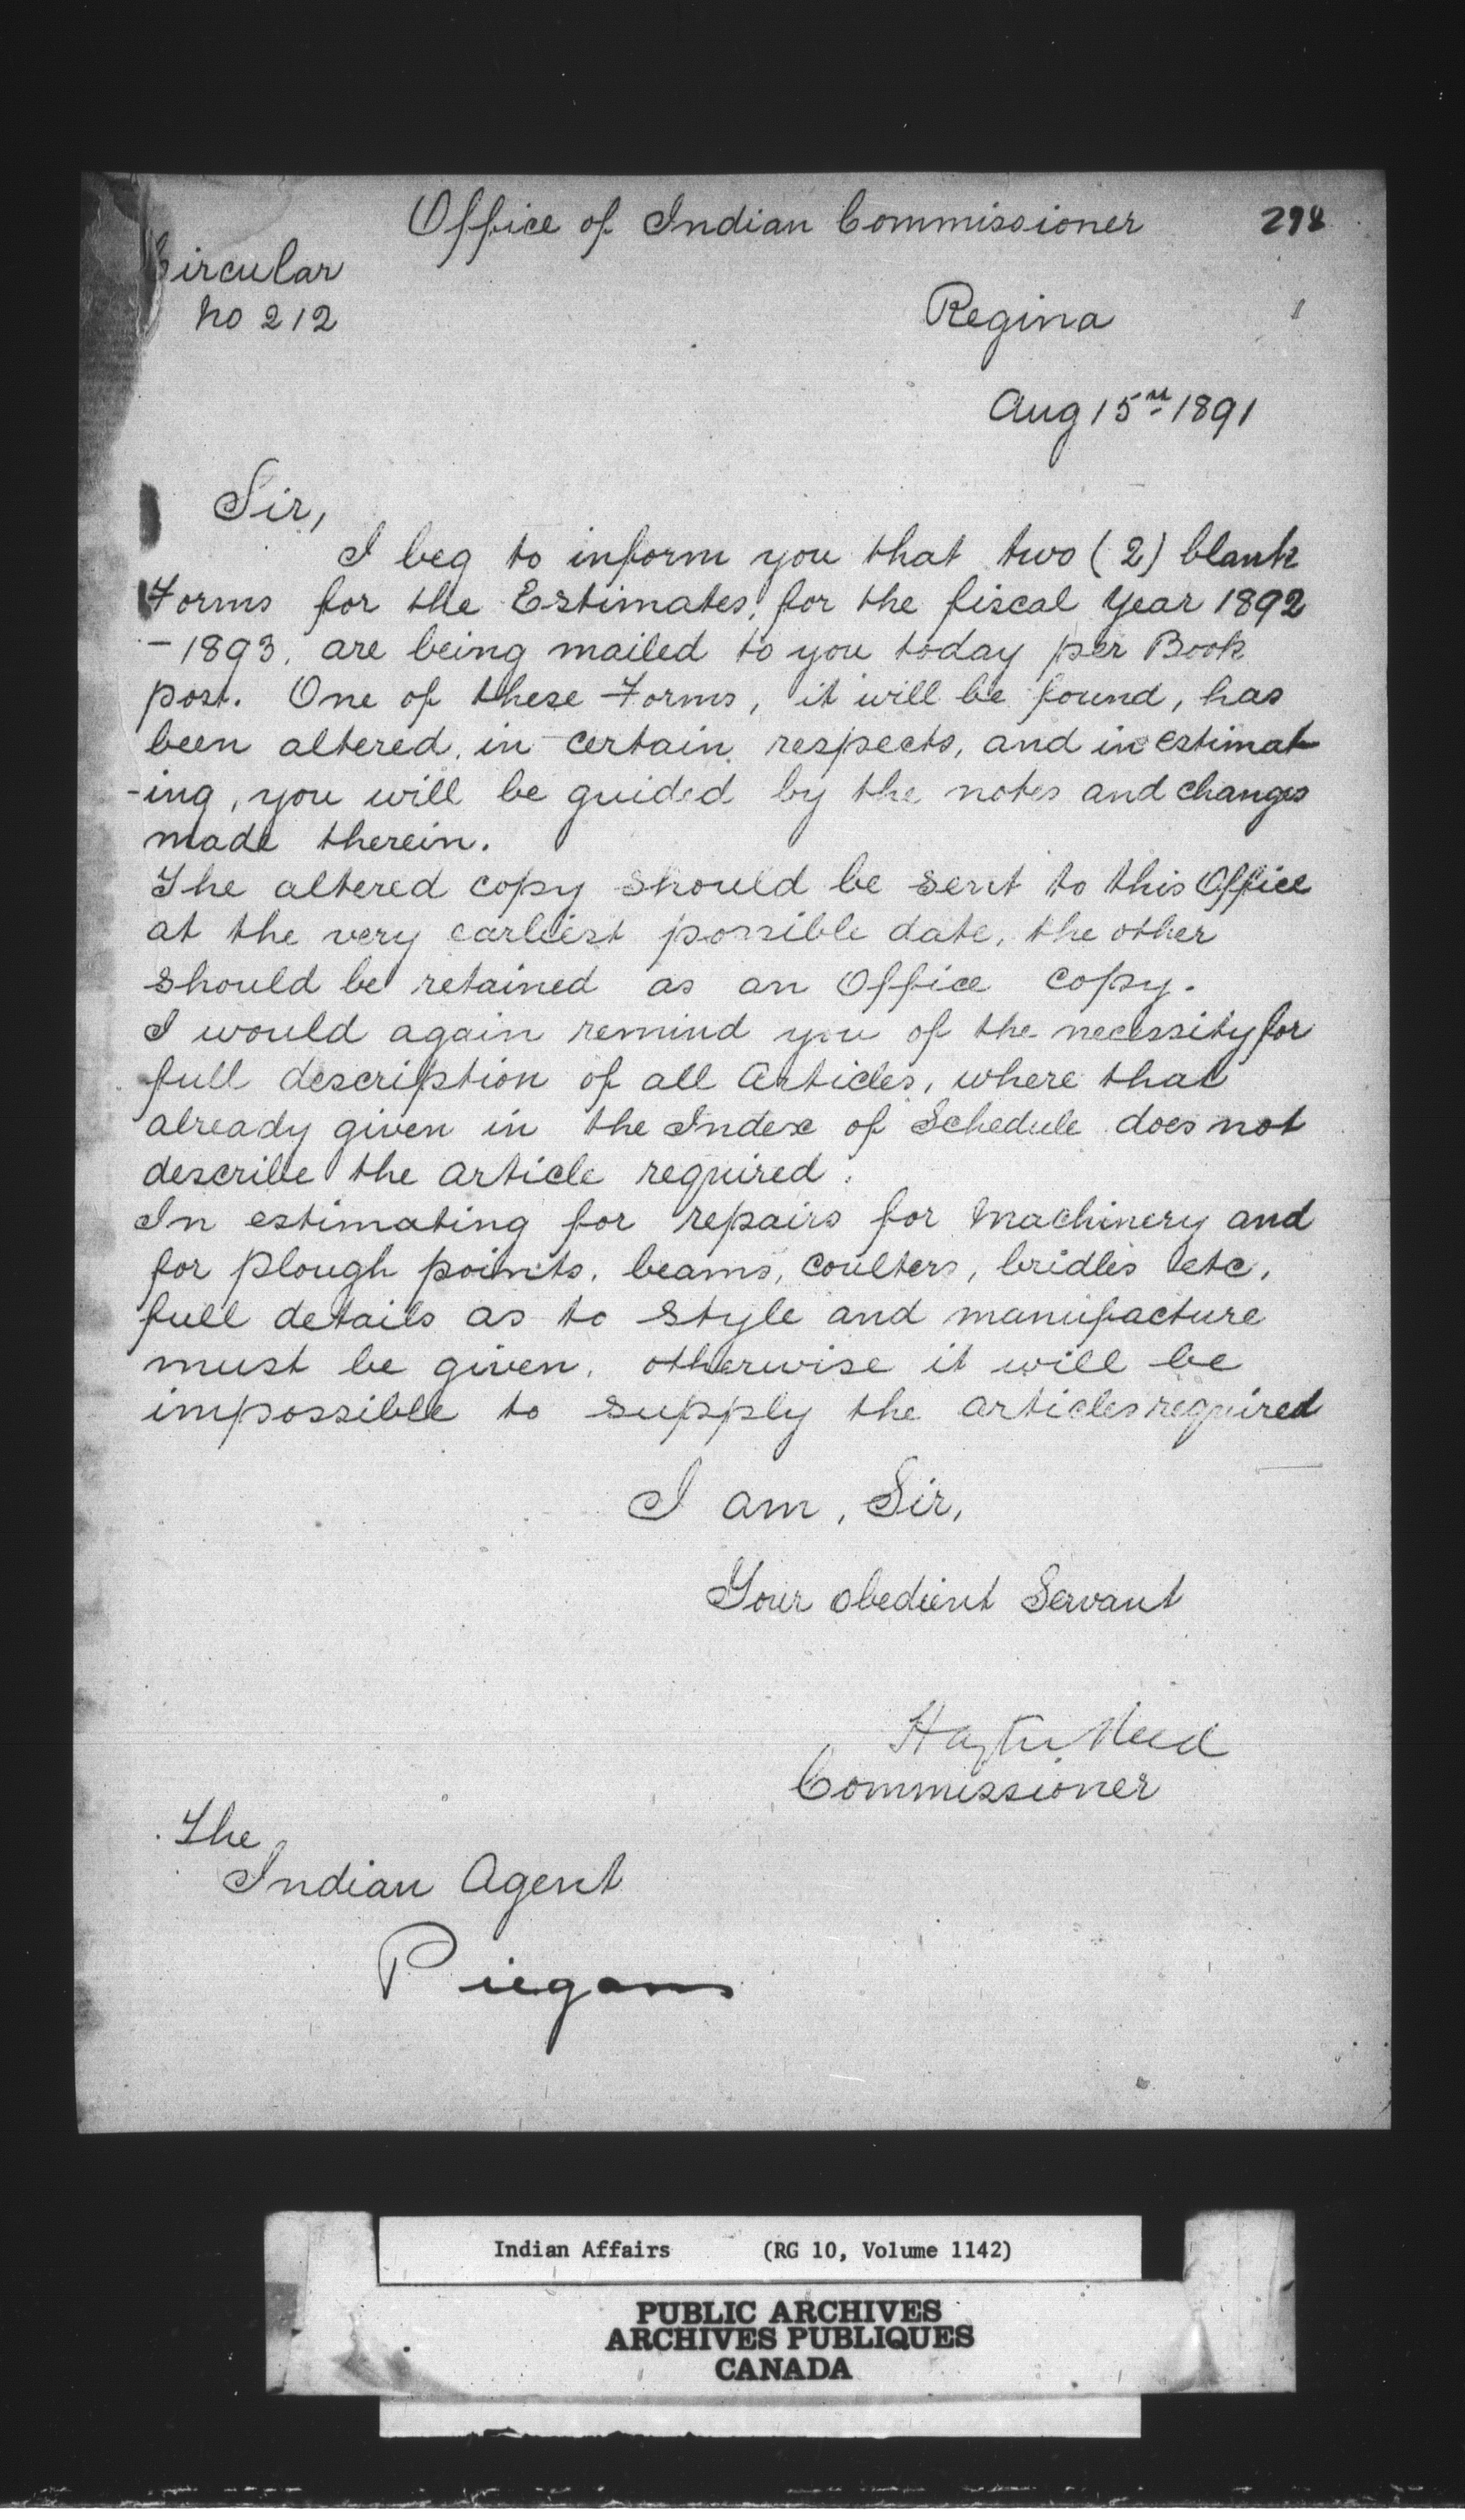 Office of Indian Commissioner
298
Circular
No 212
Regina
Aug 15th 1891
Sir,
I beg to inform you that two (2) blank
Forms for the Estimates, for the fiscal Year 1892
-1893, are being mailed to you today per Book
post. One of these Forms, it will be found, has
been altered, in certain respects, and in estimat
-ing, you will be guided by the notes and changes
made therein.
The altered copy should be sent to this Office
at the very earliest possible date, the other
should be retained as an Office copy.
I would again remind you of the necessity for
full description of all Articles, where that
already given in the Index of Schedule does not
describe the article required.
In estimating for repairs for Machinery and
for plough points, beams, coulters, bridles etc,
full details as to style and manufacture
must be given, otherwise it will be
impossible to supply the articles required
I am, Sir,
Your obedient Servant
Hayter Reed
Commissioner
The
Indian Agent
Piegans
Indian Affairs (RG 10, Volume 1142)
PUBLIC ARCHIVES
ARCHIVES PUBLIQUES
CANADA